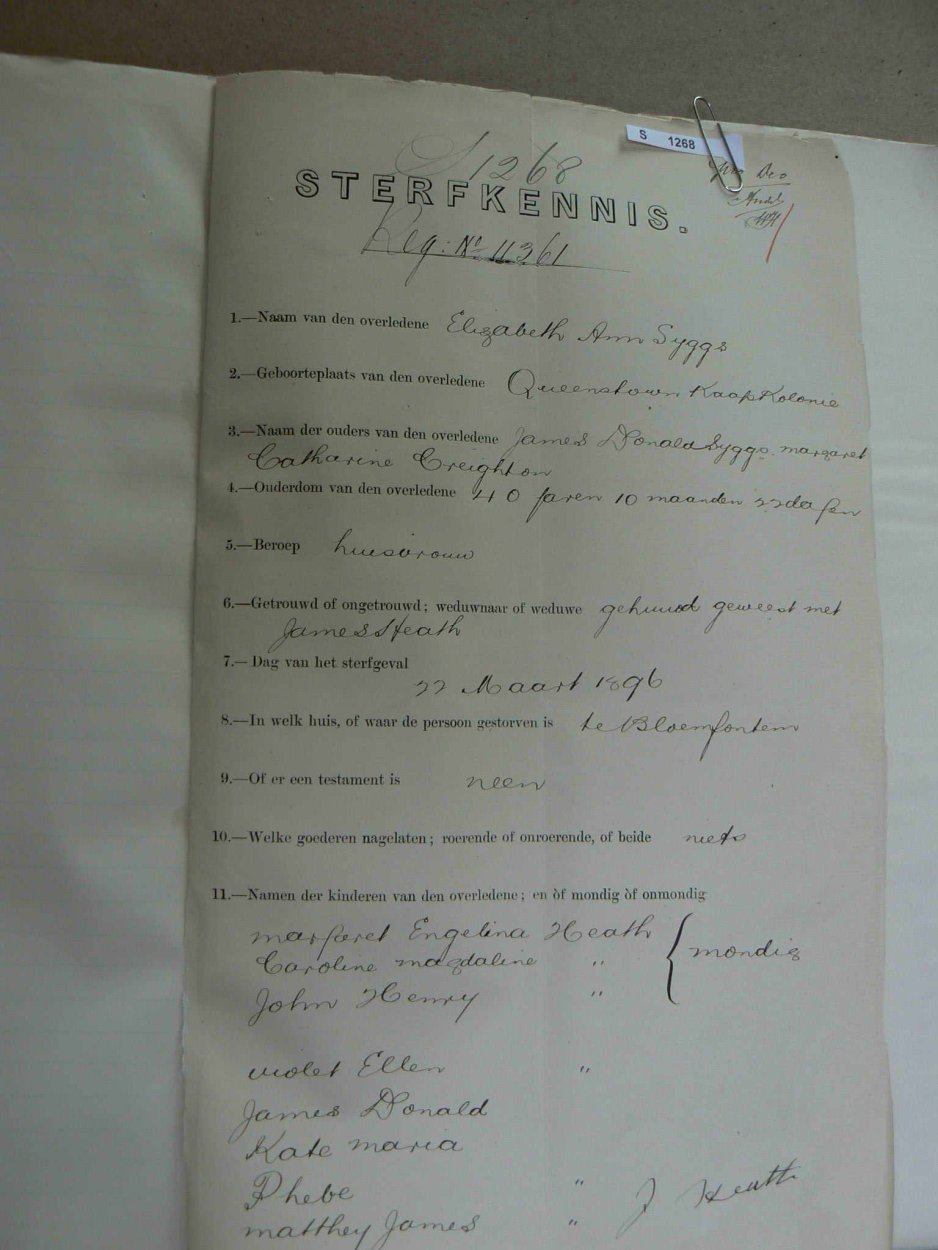 S 1268
S 1268
STERFKENNIS.
Reg: No 11361
1.—Naam van den overledene Elizabeth Ann Syggs
2.—Geboorteplaats van den overledene Queenstown Kaap Kolonie
3.—Naam der ouders van den overledene James Donald Syggs. margaret
Catharine Creighton
4.—Ouderdom van den overledene 40 Jaren 10 maanden 22 dagen
5.—Beroep huisvrouw
6.—Getrouwd of ongetrouwd; weduwnaar of weduwe gehuwd geweest met
James Heath
7.—Dag van het sterfgeval
22 Maart 1896
8.—In welk huis, of waar de persoon gestorven is te Bloemfontein
9.—Of er een testament is neen
10.—Welke goederen nagelaten; roerende of onroerende, of beide niets
11.—Namen der kinderen van den overledene; en òf mondig òf onmondig
margaret Engelina Heath
Caroline magdaline " { mondig
John Henry "
violet Ellen "
James Donald
Kate maria
Phebe " J Heath
matthey James "